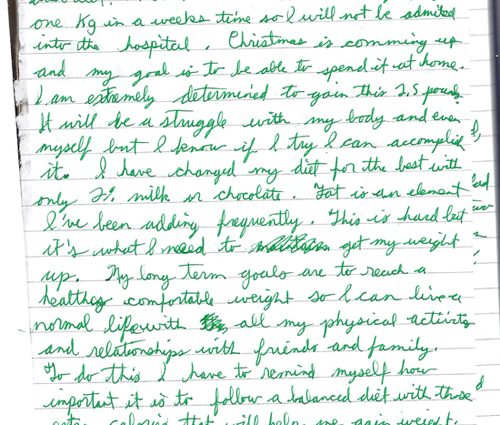 one Kg in a weeks time so I will not be admited
into the hospital. Christmas is comming up
and my goal is to be able to spend it at home.
I am extremely determined to gain this 2.5 pounds
It will be a struggle with my body and even
myself but I know if I try I can accomplish
it. I have changed my diet for the best with
only 2% milk or chocolate. Fat is an element
I've been adding frequently. This is hard but
it's what I need to get my weight
up. My long term goals are to reach a
healthy comfortable weight so I can live a
normal life with all my physical activity
and relationships with friends and family.
To do this I have to remind myself how
important it is to follow a balanced diet with those
extra calories that will help me gain weight.